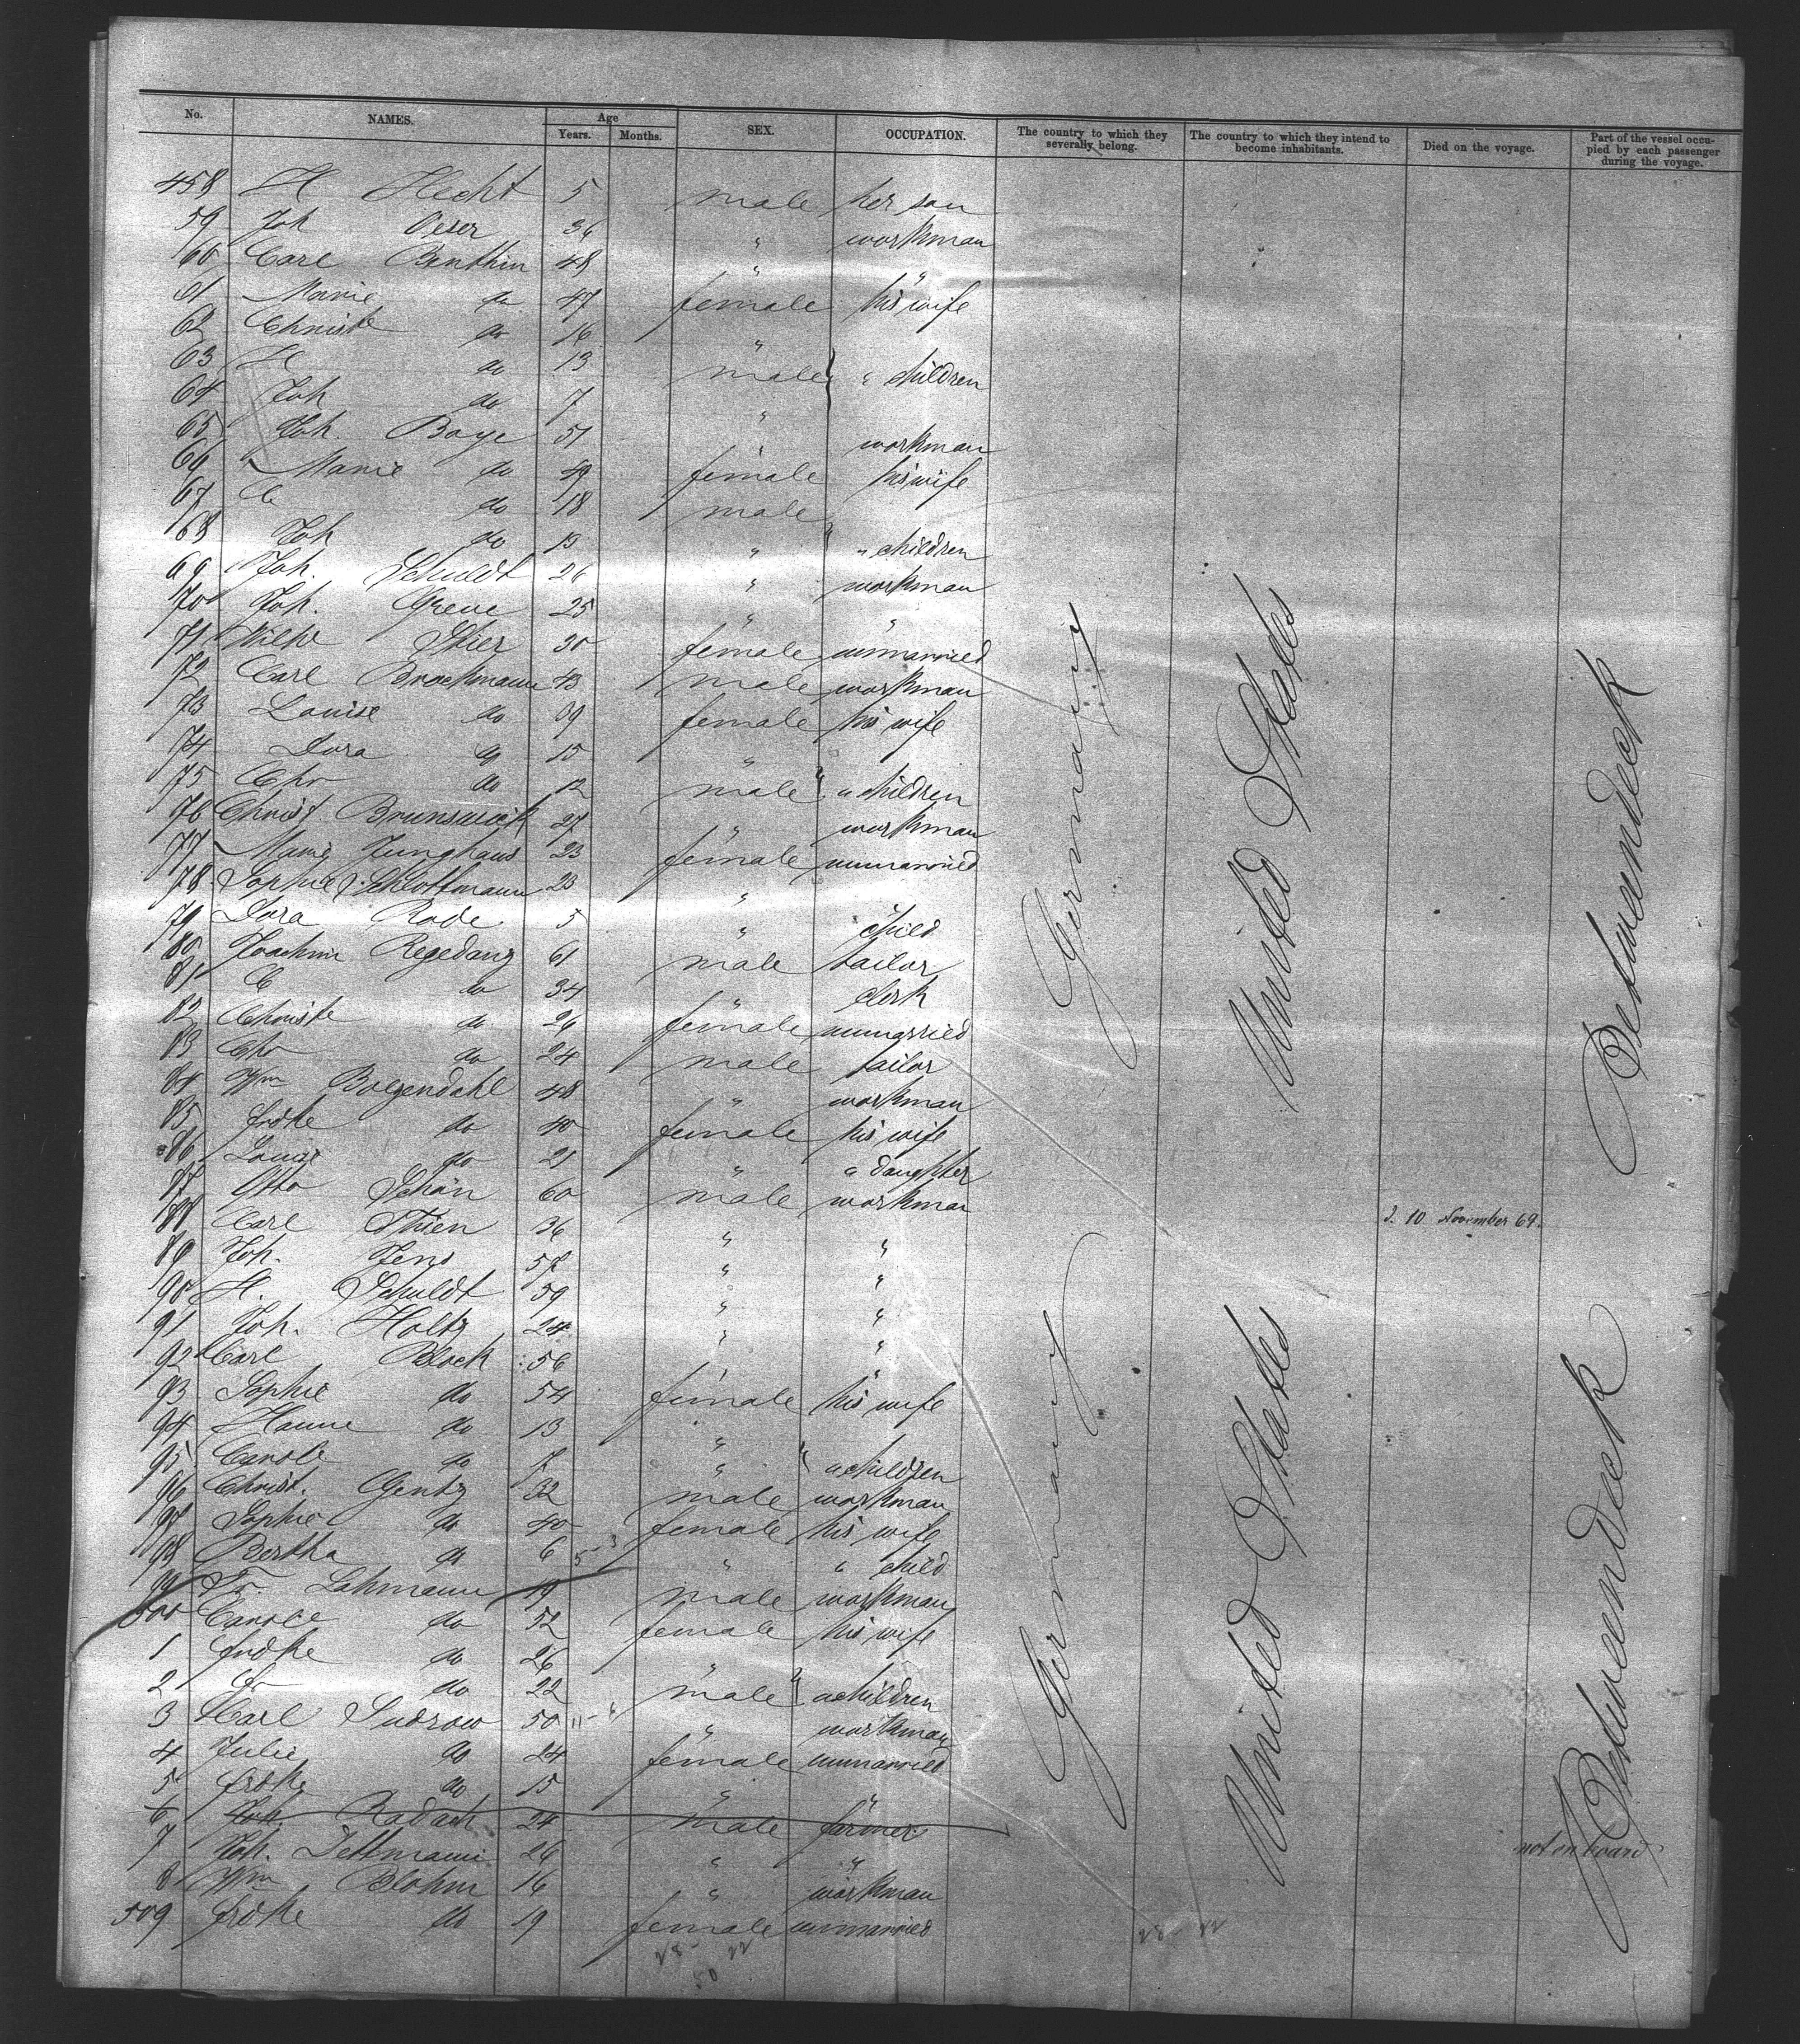 No. NAMES. Age Years. Months. SEX. OCCUPATION. The country to which they severally belong. The country to which they intend to become inhabitants. Died on the voyage. Part of the vessel occupied by each passenger during the voyage.
458 H Hecht 5 male her son
59 Joh Peser 36 " workman
60 Carl Benthin 48 " "
61 Marie do 47 female his wife
62 Christe do 16 "
63 H do 13 male " children
64 Joh do 7 "
65 Joh. Boye 51 " workman
66 Marie do 49 female his wife
67 C do 18 male
68 Joh do 13 " " children
69 Joh. Schuldt 26 " workman
70 Joh. Greve 25 " "
71 Wilhe Stier 30 female unmarried
72 Carl Brockmann 43 male workman
73 Louise do 39 female his wife
74 Dora do 15 "
75 Chr do 12 male " children
76 Christ Brunswick 27 " workman
77 Marie Junghans 23 female unmarried
78 Sophie Schlottmann 23 " "
79 Dora Rode 5 " child
80 Joachim Regedanz 61 male tailor
81 C do 34 " clerk
82 Christe do 26 female unmarried
83 Chr do 24 male tailor
84 Wm Bolzendahl 48 " workman
85 Fridke do 40 female his wife
86 Louise do 21 " " daughter
87 Otto Schön 60 male workman
88 Carl Thien 36 " " d. 10 November 69.
89 Joh. Jens 57 " "
90 H. Schuldt 59 " "
91 Joh. Holtz 24 " "
92 Carl Block 56 " "
93 Sophie do 54 female his wife
94 Hanne do 13 "
95 Carole do 7 " " children
96 Christ. Gentz 32 male workman
97 Sophie do 40 female his wife
98 Bertha do 6 5-3 " " child
99 Fr Lahmann 49 male workman
500 Carole do 52 female his wife
1 Fridke do 26 "
2 Fr do 22 male " children
3 Carl Sudrow 50 11- " workman
4 Julie do 24 female unmarried
5 Fridke do 15 " "
6 Joh. Radack 24 male farmer not on board
7 Joh. Dettmann 26 " "
8 Wm Blohm 16 " workman
509 Fridke do 19 female unmarried
Germany United States Betweendeck
Germany United States Betweendeck